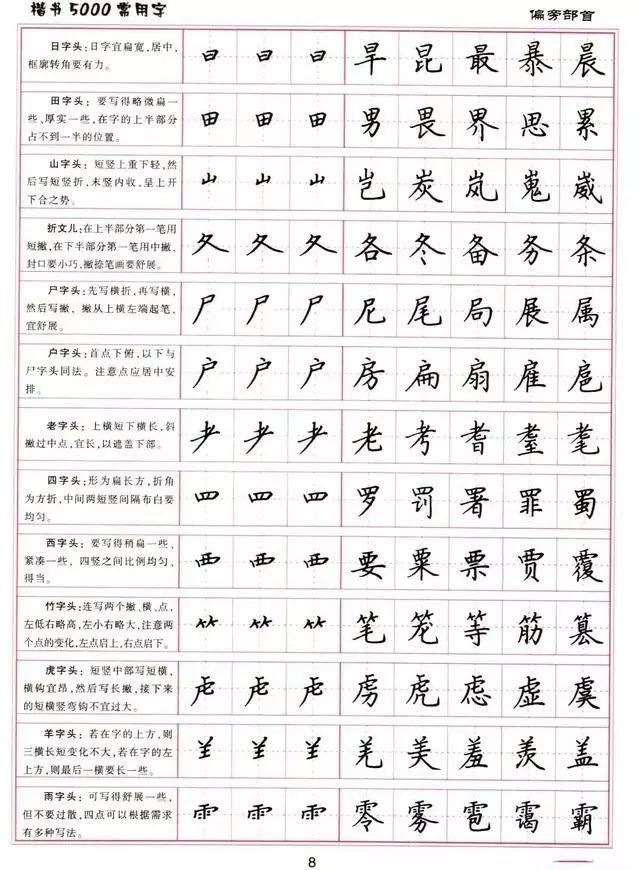 楷书5000常用字
偏旁部首
日字头：日字宜扁宽，居中，
框廓转角要有力。
曰 曰 曰 旱 昆 最 暴 晨
田字头：要写得略微扁一
些，厚实一些，在字的上半部分
占不到一半的位置。
田 田 田 男 畏 界 思 累
山字头：短竖上重下轻，然
后写短竖折，末竖内收，呈上开
下合之势。
山 山 山 岂 炭 岚 嵬 崴
折文儿：在上半部分第一笔用
短撇，在下半部分第一笔用中撇，
封口要小巧，撇捺笔画要舒展。
夂 夂 夂 各 冬 备 务 条
尸字头：先写横折，再写横，
然后写撇，撇从上横左端起笔，
宜舒展。
尸 尸 尸 尼 尾 局 展 属
户字头：首点下俯，以下与
尸字头同法。注意点应居中安
排。
户 户 户 房 扁 扇 雇 扈
老字头：上横短下横长，斜
撇过中点，宜长，以遮盖下部。
耂 耂 耂 老 考 耆 耋 耄
四字头：形为扁长方，折角
为方折，中间两短竖间隔布白要
均匀。
罒 罒 罒 罗 罚 署 罪 蜀
西字头：要写得稍扁一些、
紧凑一些，四竖之间比例均匀、
得当。
覀 覀 覀 要 粟 票 贾 覆
竹字头：连写两个撇、横、点，
左低右略高，左小右略大，注意两
个点的变化，左点启上，右点启下。
⺮ ⺮ ⺮ 笔 笼 等 筋 篡
虎字头：短竖中部写短横，
横钩宜昂，然后写长撇，接下来
的短横竖弯钩不宜过大。
虍 虍 虍 虏 虎 虑 虚 虞
羊字头：若在字的上方，则
三横长短变化不大，若在字的左
上方，则最后一横要长一些。
⺷ ⺷ ⺷ 羌 美 羞 羡 盖
雨字头：可写得舒展一些，
但不要过散，四点可以根据需求
有多种写法。
⻗ ⻗ ⻗ 零 雾 雹 霭 霸
8